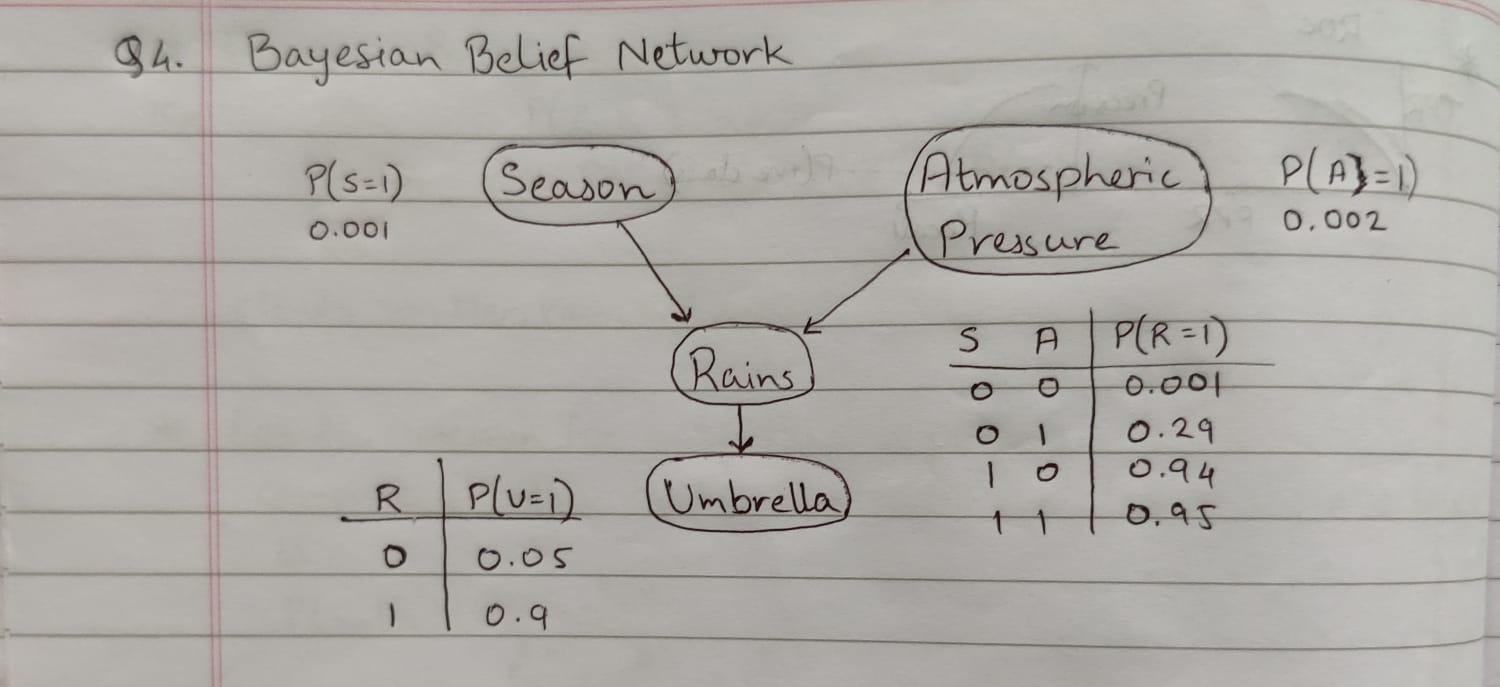 Q4. Bayesian Belief Network
P(S=1)
0.001
Season
Atmospheric
Pressure
P(A=1)
0.002
Rains
S A P(R=1)
0 0 0.001
0 1 0.29
1 0 0.94
1 1 0.95
Umbrella
R P(U=1)
0 0.05
1 0.9